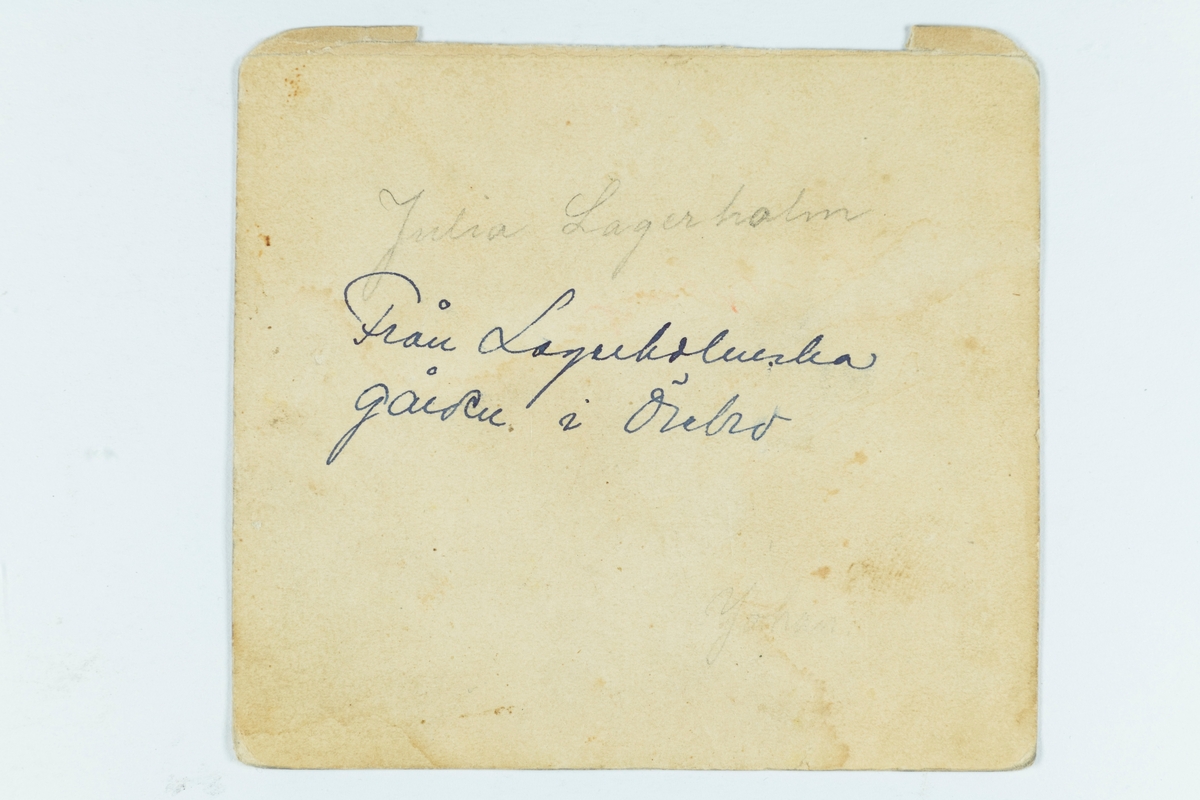 Julia Lagerholm
Från Lagerholmska
gården i Örebro